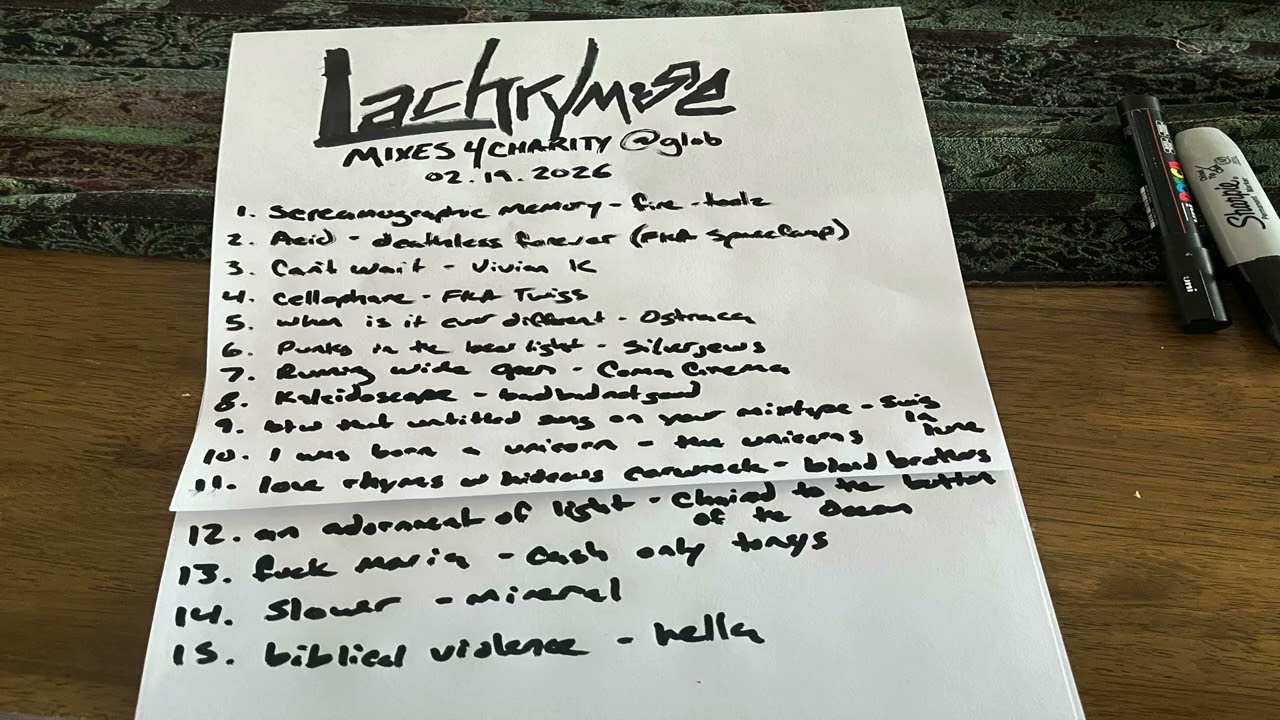 Lachrymose
MIXES 4 CHARITY @glob
02.19.2026
1. Screamographic Memory - fire-toolz
2. Acid - deathless forever (FKA SpaceCamp)
3. Can't wait - Vivian K
4. cellophane - FKA Twigs
5. when is it ever different - Ostraca
6. Punks in the beerlight - Silver jews
7. Running wide open - Coma Cinema
8. Kaleidoscope - badbadnotgood
9. btw that untitled song on your mixtype - Swig
in June
10. I was born a unicorn - the unicorns
11. love rhymes w hideous carwreck - blood brothers
12. an adornment of light - Chained to the bottom
of the Ocean
13. fuck maria - cash only tonys
14. Slower - mineral
15. biblical violence - hella
Sharpie
uni